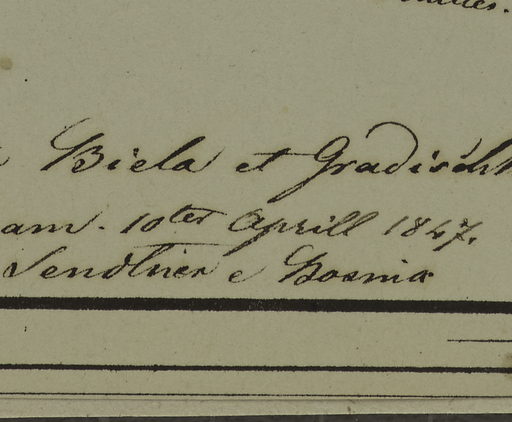 Biela et Gradisch
am. 10ter Aprill 1847.
Sendtner e Bosnia